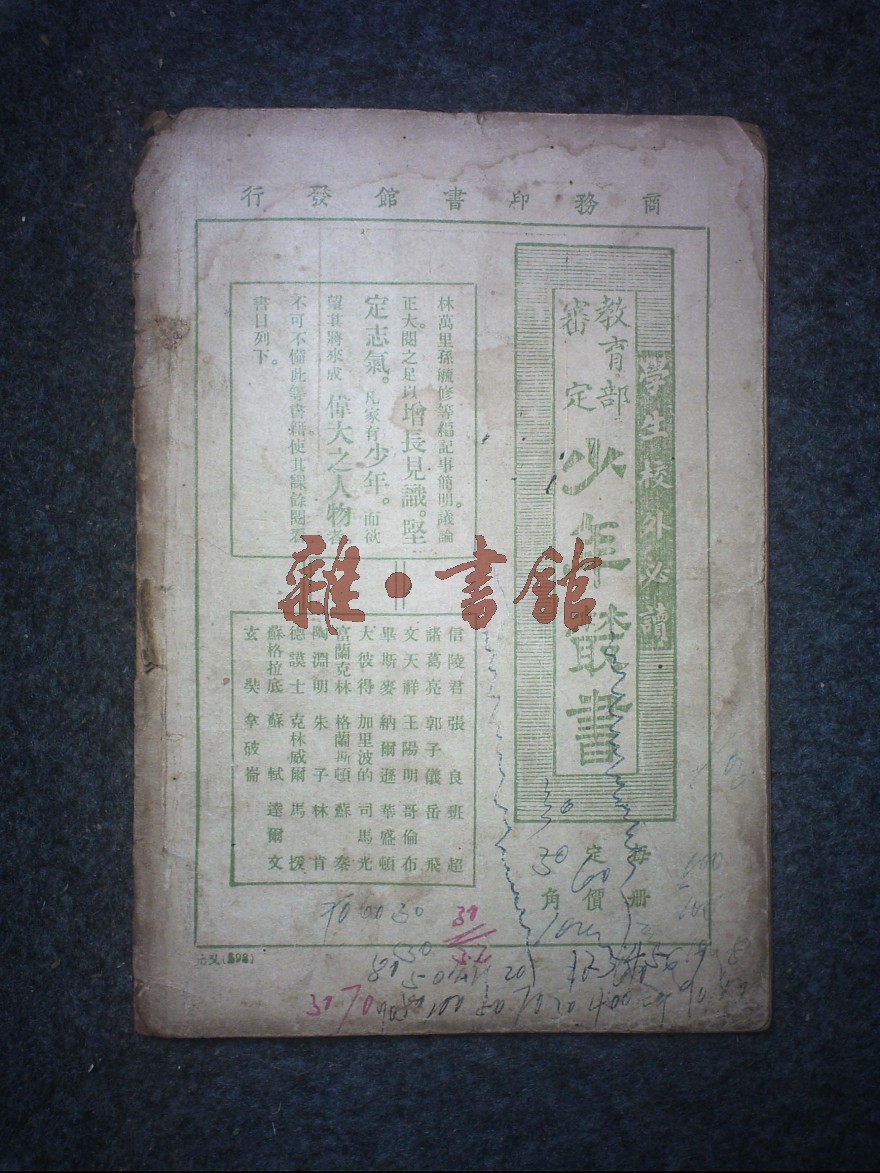 商務印書館發行
學生校外必讀
教育部
審定
少年叢書
每冊
定價
角
林萬里孫毓修等編記事簡明。議論
正大。閱之足以增長見識。堅
定志氣。凡家有少年。而欲
望其將來成偉大之人物者
不可不備此等書籍。使其課餘閱看
書目列下。
信陵君 張良 班超
諸葛亮 郭子儀 岳飛
文天祥 王陽明 哥倫布
畢斯麥 納爾遜 華盛頓
大彼得 加里波的 司馬光
富蘭克林 格蘭斯頓 蘇秦
陶淵明 朱子 林肯
德謨士 克林威爾 馬援
蘇格拉底 蘇軾 達爾文
玄奘 拿破崙
雜·書館
30
50
60
90 60 30
31
50
81
20
30 70
100 50 70 20 400